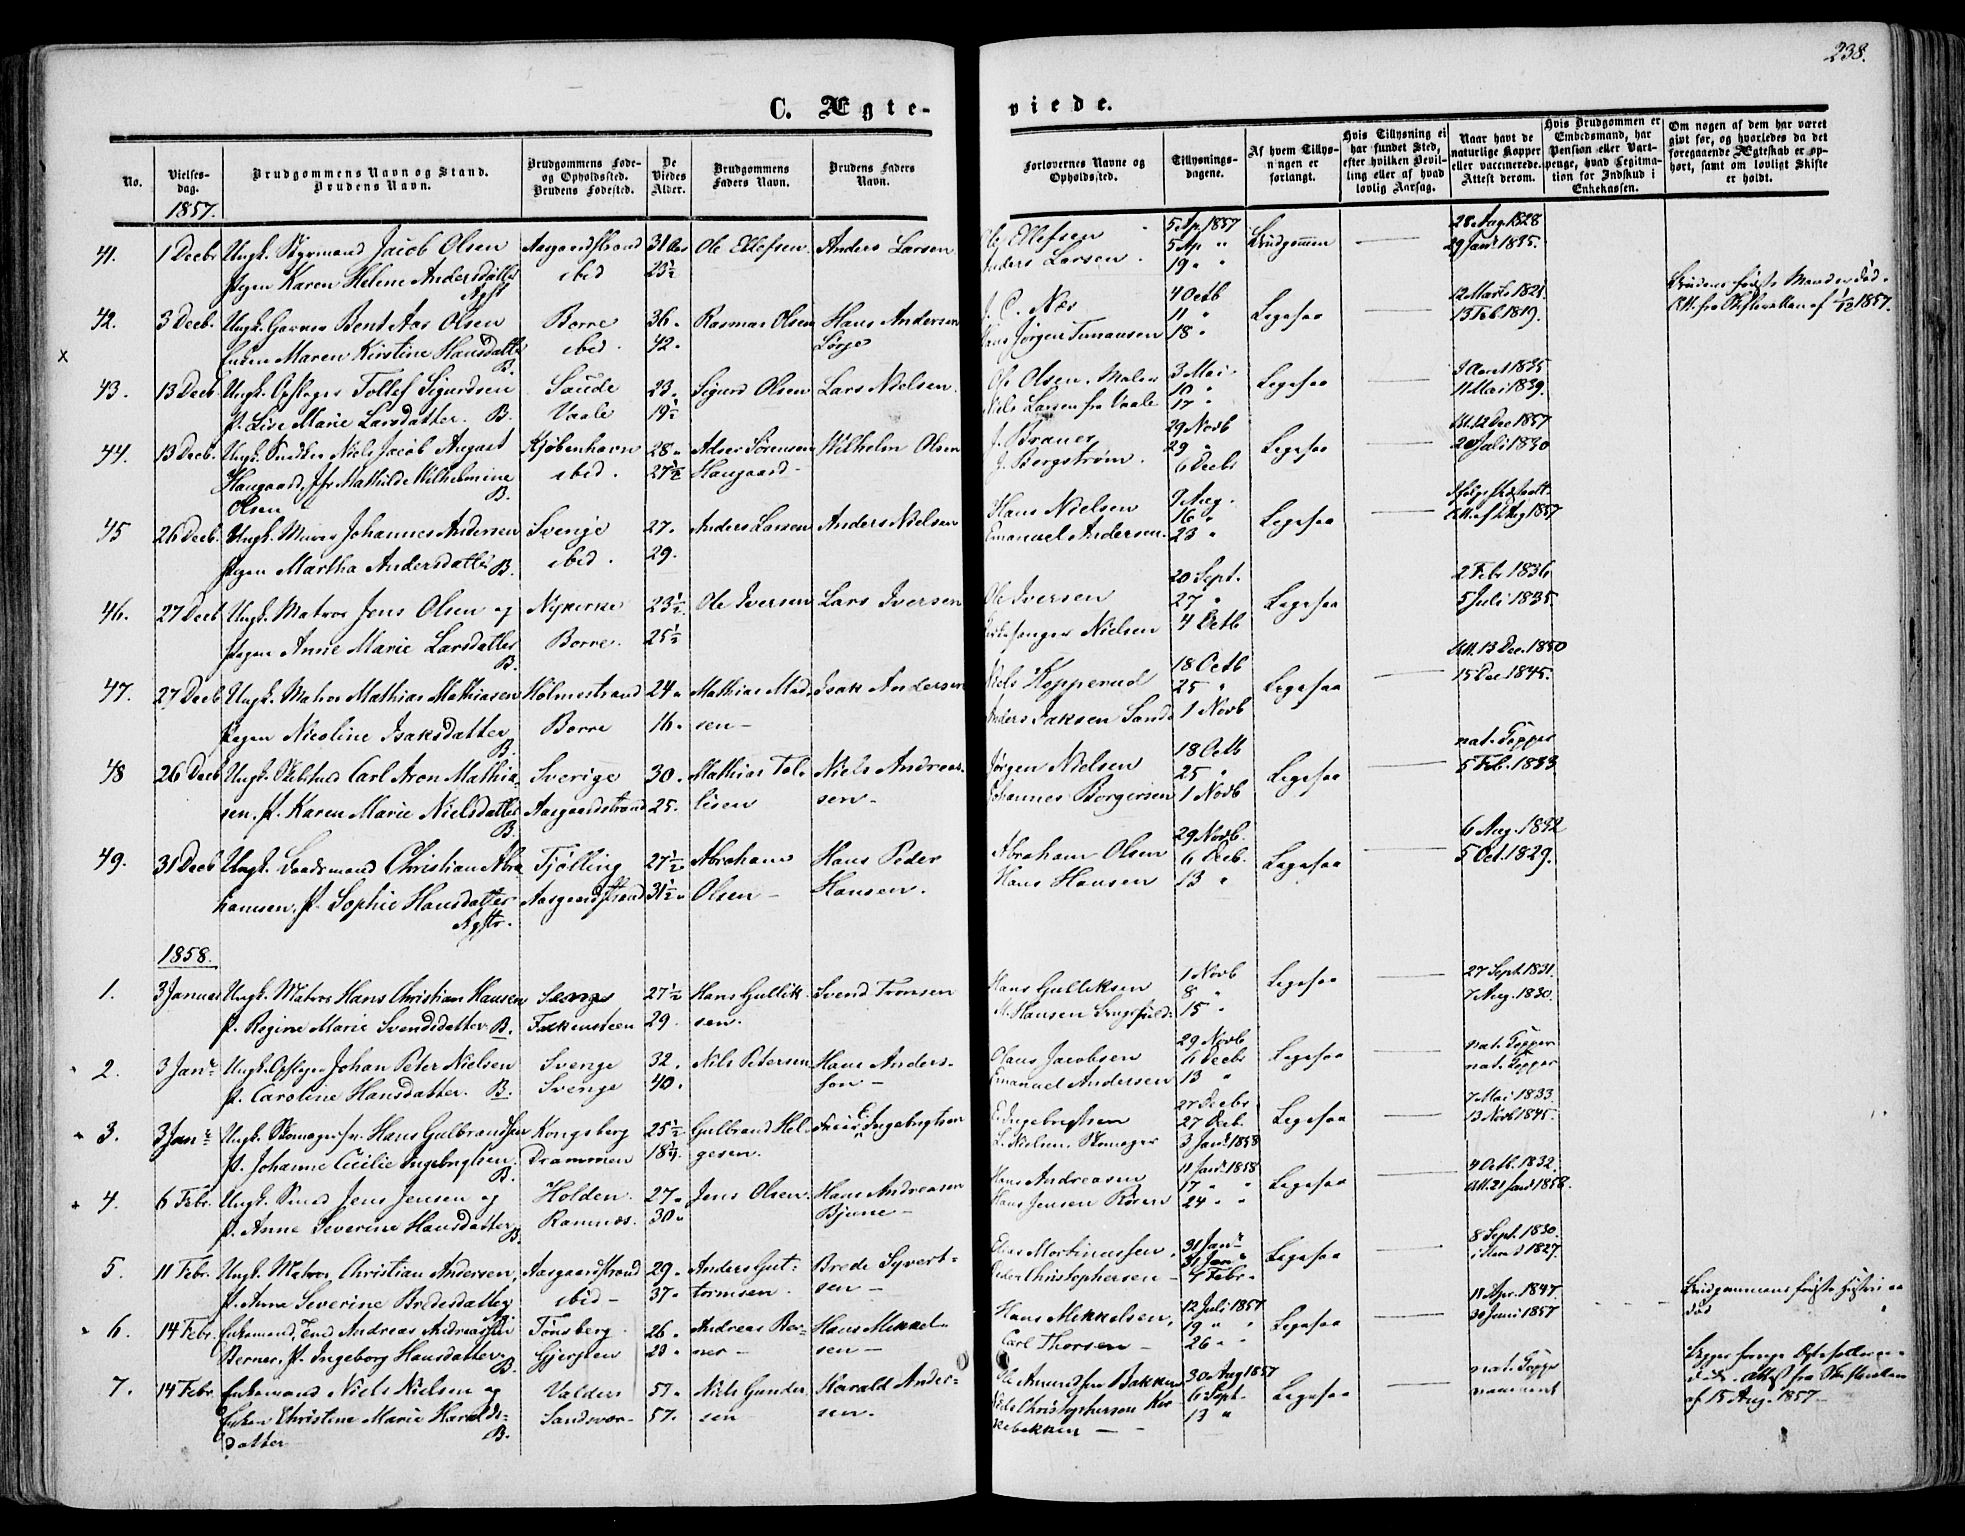 238.
C. Ægte-
viede.
No.
Vielses-
dag.
1857.
Brudgommens Navn og Stand.
Brudens Navn.
Brudgommens Føde-
og Opholdssted.
Brudens Fødested.
De
Viedes
Alder.
Brudgommens
Faders Navn.
Brudens Faders
Navn.
Forlovernes Navne og
Opholdssted.
Tillysnings-
dagene.
Af hvem Tillys-
ningen er
forlangt.
Hvis Tillysning ei
har fundet Sted,
efter hvilken Bevil-
ling eller af hvad
lovlig Aarsag.
Naar havt de
naturlige Kopper
eller vaccinerede.
Attest derom.
Hvis Brudgommen er
Embedsmand, har
Pension eller Vart-
penge, hvad Legitima-
tion for Indskud i
Enkekassen.
Om nogen af dem har været
gift før, og hvorledes da det
foregaaende Ægteskab er op-
hørt, samt om lovligt Skifte
er holdt.
41. 1 Decbr Ungk. Styrmand Jacob Olsen Aasgaardstrand 31 Aar Ole Ellefsen Anders Larsen Ole Ellefsen 5 Ap 1857 Brudgommen 28 Aug. 1828
Pigen Karen Helene Andersdatter ibid 23½ Anders Larsen 5 Ap " 29 Jan. 1835.
Agst 19 "
42. 3 Decb. Ungk. Garver Bent Aas Olsen Borre 36 Rasmus Olsen Hans Andersen J. C. Næs 4 Octb Ligesaa 12 Marts 1821
Enken Maren Kirstine Hansdatter ibid. 42 Hans Jørgen 11 " 13 Feb 1819.
B. 18 "
Brudens første Mand er død.
Att. fra Skifteretten af 1/12 1857.
x
43. 13 Decb Ungk. Opsteger Tollef Sigurdsen Saude 23 Sigurd Olsen Lars Nielsen Ole Olsen, Maler 3 Mai Ligesaa 1835
P. Lise Marie Larsdatter. B. Vaale 19½ Niels Larsen fra Vaale 10 " 11 Mai 1839.
17 "
44. 13 Decb. Ungk. Snedker Niels Jacob August Kjøbenhavn 28 Adser Sørensen Wilhelm Olsen J. Brauer 29 Novb Ligesaa Att. 12 Dec 1857
Haugaard, Jfr. Mathilde Wilhelmine ibid. 27½ Haugaard J. Bergstrøm 29 " 20 Juli 1830
Olsen B. 6 Decbr
45 26 Decb. Ungk. Murer Johannes Andersen Sverige 27 Anders Larsen Anders Nielsen Hans Nielsen 9 Aug. Ligesaa
Pigen Martha Andersdatter B. ibid. 29. Emanuel Andersen. 16 " Aug 1857
23 "
46. 27 Decb Ungk. Matros Jens Olsen og Nykirke 23½ Ole Iversen Lars Iversen Ole Iversen 20 Sept. Ligesaa 2 Febr 1836
Pigen Anne Marie Larsdatter Borre. 25½ Kirkesanger Nielsen 27 " 5 Juli 1835
B. 4 Octb
47. 27 Decb Ungk. Matros Mathias Mathiasen Holmestrand 24 Mathias Mad- Isak Andersen Niels Kopperud 18 Octb Ligesaa Att. 13 Dec. 1850
Pigen Nicoline Isaksdatter Borre 16 sen Anders Isaksen Sande 25 " 15 Dec 1845.
B. 1 Novb
48 26 Decb Ungk. Carl Aron Mathia- Sverige 30 Mathias Tol- Niels Andrea- Jørgen Nielsen 18 Octb Ligesaa nat. Copper
sen, P. Karen Marie Nielsdatter Aasgaardstrand 25. lisen sen Johannes Borgersen 25 " 5 Feb. 1833
B. 1 Novb
49. 31 Decb Ungk. Baadsmand Christian Abra Tjølling 27½ Abraham Hans Peder Abraham Olsen 29 Novb. Ligesaa 6 Aug. 1832
hamsen. P. Sophie Hansdatter Aasgaardstrand 31½ Olsen Hansen. Hans Hansen 6 Decb. 5 Oct. 1829.
Agstr. 13 "
1858.
1. 3 Januar Ungk. Matros Hans Christian Hansen 27½ Hans Gullik- Svend Tronsen Hans Gulliksen 1 Novb Ligesaa 27 Sept 1831.
P. Regine Marie Svendsdatter. B. Falkensteen 29. sen. M. Hansen 8 " 7 Aug. 1830.
15 "
2. 3 Janr Ungk. Opsteger Johan Peter Nielsen Sverige 32. Nils Petersen Hans Anders- Olaus Jacobsen 29 Novb Ligesaa nat. Copper
P. Caroline Hansdatter. B. Sverige 40. son Emanuel Andersen 6 Decbr nat. Copper
13 "
3. 3 Janr Ungk. Skomagersv. Hans Gulbrandsen Kongsberg 25½ Gulbrand Hel- Ingebrigtsen E. Ingebrigtsen 27 Decbr Ligesaa 7 Mai 1833.
P. Johanne Cecilie Ingebrigtsen Drammen 18¼ gesen. L. Nielsen, Skomager 27 Decb. 13 Novb 1845.
B. 3 Jan. 1858
4. 6 Febr. Ungk. Smed Jens Jensen og Holden 27 Jens Olsen Hans Andreasen Hans Andreasen 11 Jan. 1858 Ligesaa 4 Octb. 1832.
P. Anne Severine Hansdatter Ramnæs. 30 Bjune Hans Jensen Røren 17 " Att. 21 Jan 1858.
B. 24 "
5. 11 Febr. Ungk. Matros Christian Andersen, Aasgaardstrand 29 Anders Gut- Brede Syvert- Elias Mortinussen, 31 Janr Ligesaa 8 Sept. 1830.
P. Anne Severine Bredesdatter ibid 37 tormsen. sen Peder Christophersen 31 Jan 1827.
4 Febr.
6. 14 Febr. Enkemand, Andreas Andreassen Tønsberg 26 Andreas Ber- Hans Mikkel- Hans Mikkelsen, 12 Juli 1857 Ligesaa 11 Apr. 1847.
Berner, P. Ingeborg Hansdatter Gjerpen 28 ner sen Carl Thorsen 19 " 30 Juni 1857
B. 26 "
Brudgommens første Hustru er
død
7. 14 Febr. Enkemand Niels Nielsen og Valders 51 Niels Gunder Harald Ander- Ole Amundsen Bakken 30 Aug 1857 Ligesaa nat. Copper
Enken Christine Marie Haralds- Sandsvær 57. sen sen. Niels Christophersen Kir- 6 Sept.
datter B. kebakken 13 "
Attest fra Skifteretten
af 15 Aug. 1857